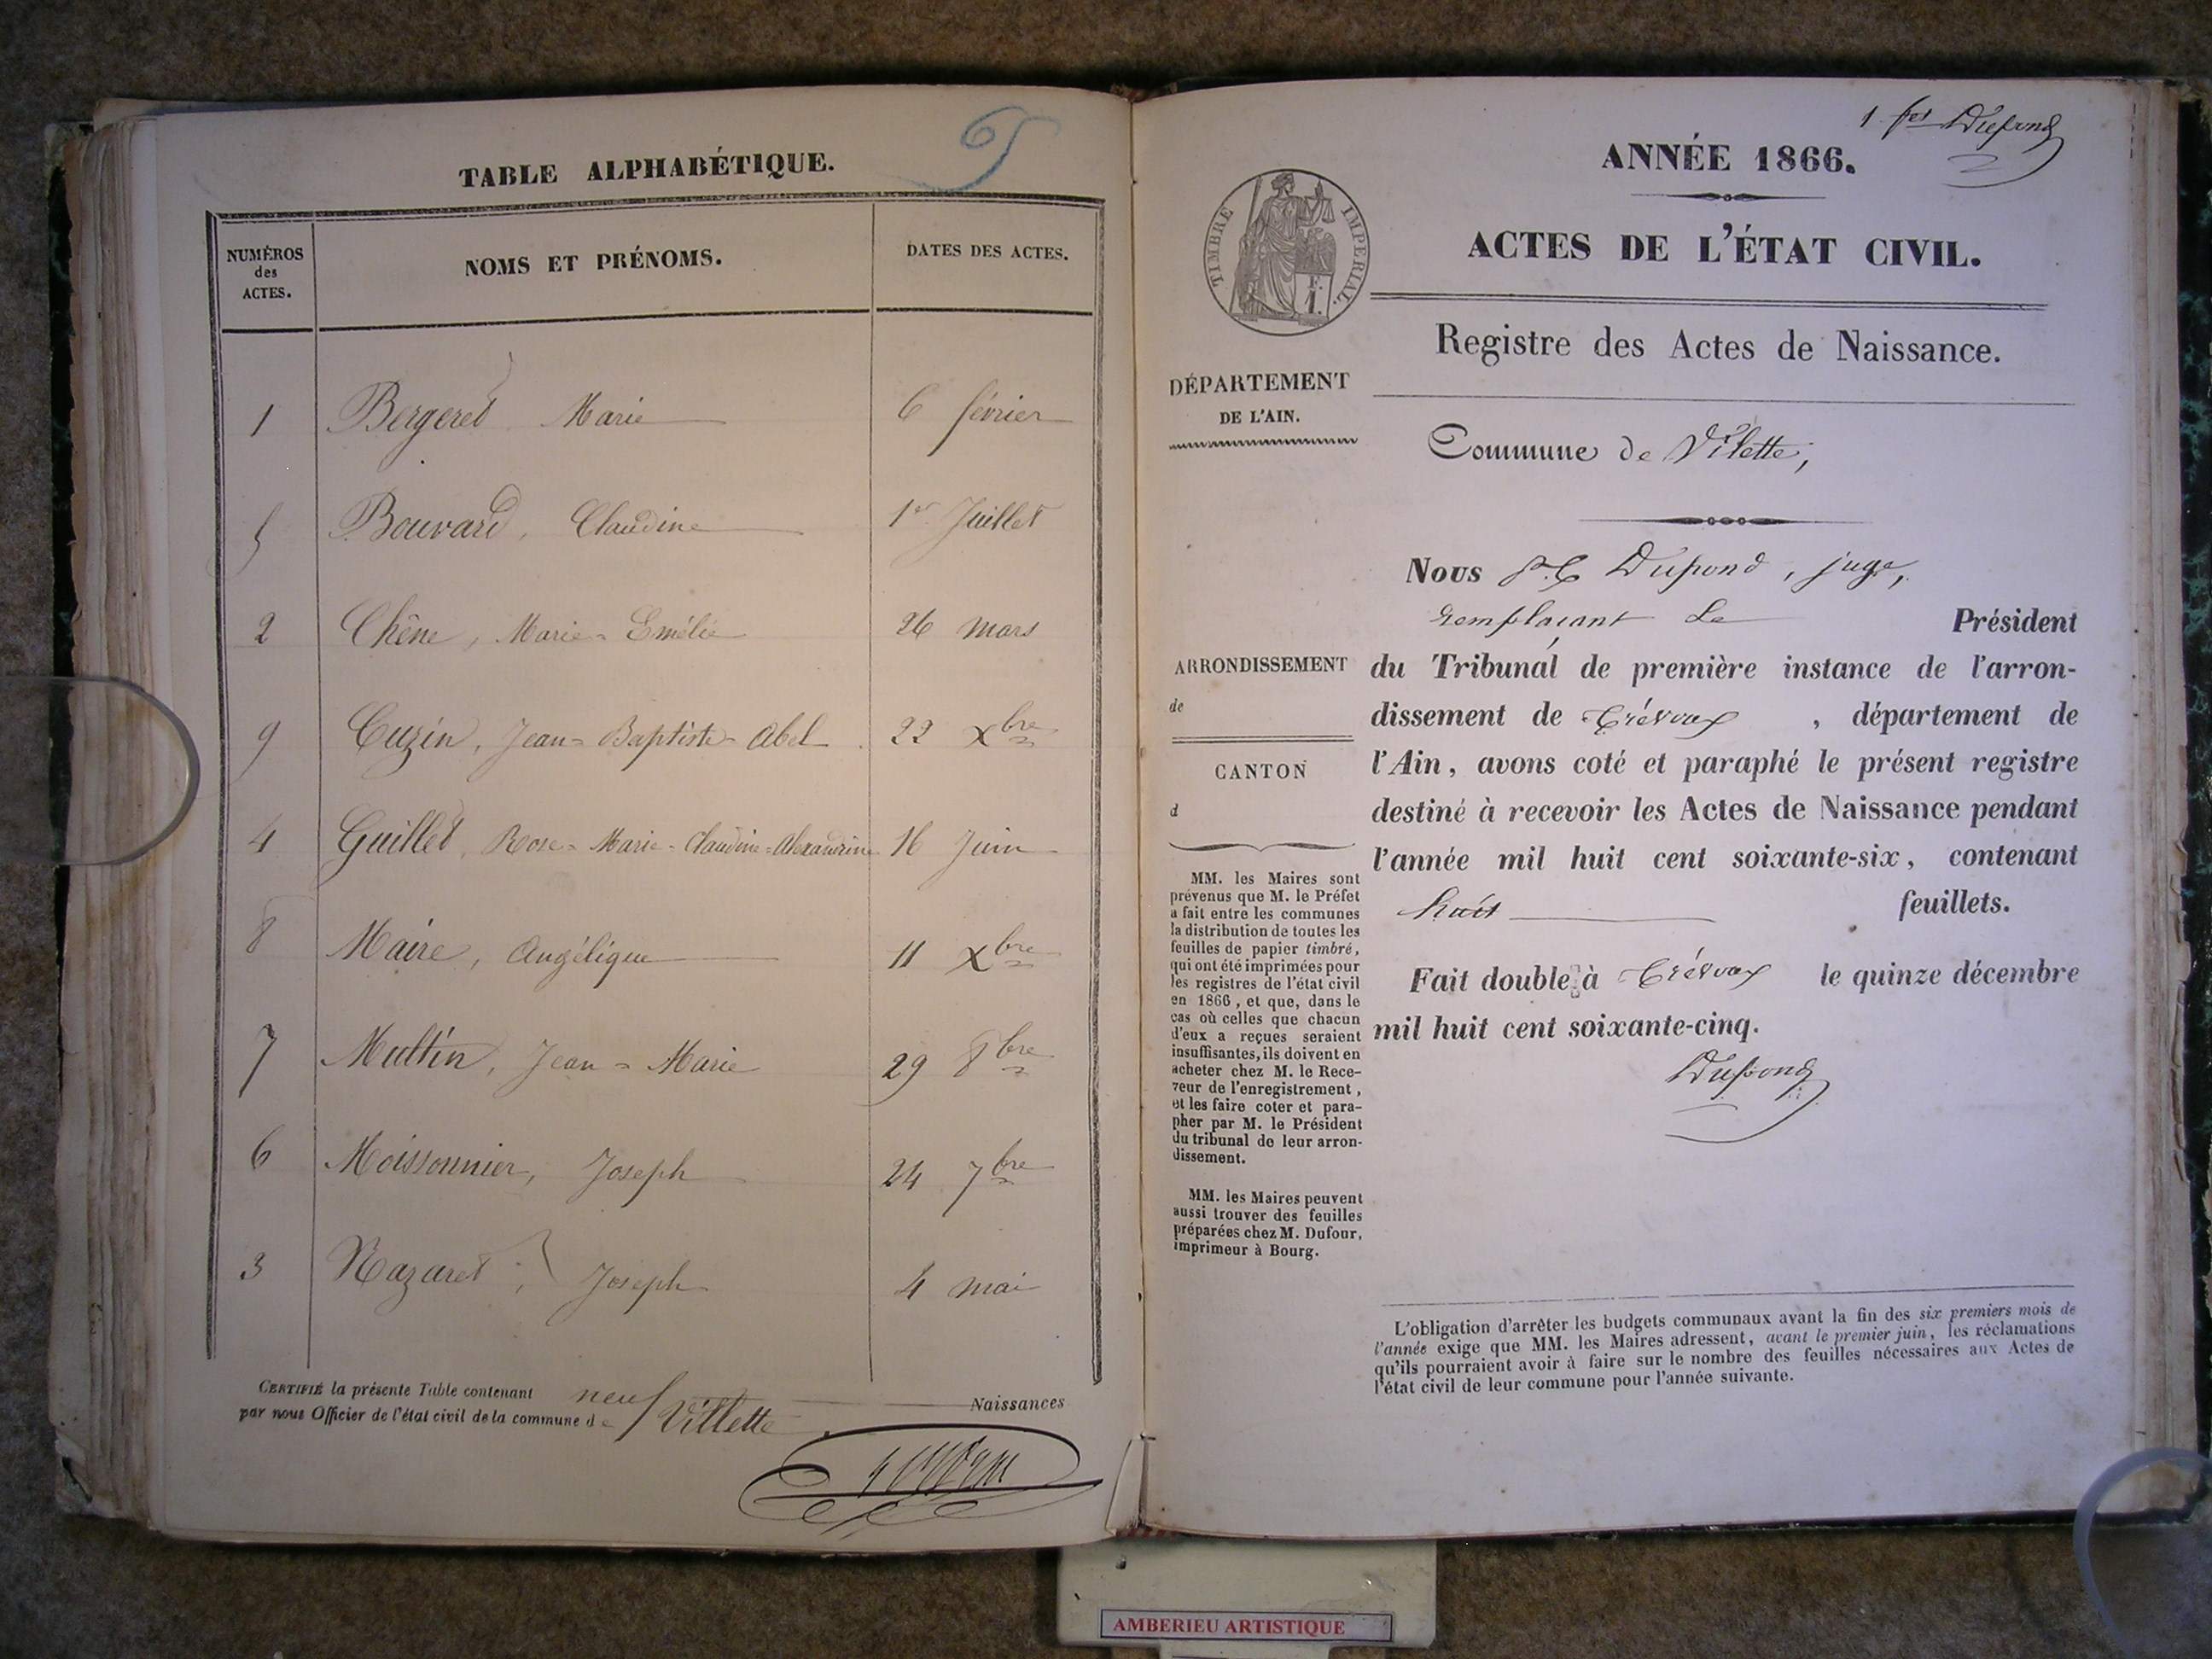 TABLE ALPHABÉTIQUE.
NUMÉROS des ACTES.
NOMS ET PRÉNOMS.
DATES DES ACTES.
1 Bergeret Marie 6 février
5 Bouvard, Claudine 1er Juillet
2 Chêne, Marie-Emélie 26 mars
9 Cuzin, Jean-Baptiste-Abel 22 Xbre
4 Guillet, Rose-Marie-Claudine-Alexandrine 16 Juin
8 Maire, Angélique 11 Xbre
7 Multin, Jean-Marie 29 8bre
6 Moissonnier, Joseph 24 7bre
3 Nazaret, Joseph 4 mai
CERTIFIÉ la présente Table contenant neuf Naissances
par nous Officier de l'état civil de la commune de Villette
1 fet Dupond
ANNÉE 1866.
TIMBRE IMPÉRIAL.
ACTES DE L'ÉTAT CIVIL.
Registre des Actes de Naissance.
DÉPARTEMENT
DE L'AIN.
Commune de Vilette,
Nous Dupond, juge,
remplaçant Le Président
ARRONDISSEMENT
de
du Tribunal de première instance de l'arron-
dissement de Trévoux, département de
l'Ain, avons coté et paraphé le présent registre
destiné à recevoir les Actes de Naissance pendant
l'année mil huit cent soixante-six, contenant
huit feuillets.
Fait double à Trévoux le quinze décembre
mil huit cent soixante-cinq.
Dupond
CANTON
d
MM. les Maires sont
prévenus que M. le Préfet
a fait entre les communes
la distribution de toutes les
feuilles de papier timbré,
qui ont été imprimées pour
les registres de l'état civil
en 1866, et que, dans le
cas où celles que chacun
d'eux a reçues seraient
insuffisantes, ils doivent en
acheter chez M. le Rece-
veur de l'enregistrement,
et les faire coter et para-
pher par M. le Président
du tribunal de leur arron-
dissement.
MM. les Maires peuvent
aussi trouver des feuilles
préparées chez M. Dufour,
imprimeur à Bourg.
L'obligation d'arrêter les budgets communaux avant la fin des six premiers mois de
l'année exige que MM. les Maires adressent, avant le premier juin, les réclamations
qu'ils pourraient avoir à faire sur le nombre des feuilles nécessaires aux Actes de
l'état civil de leur commune pour l'année suivante.
AMBERIEU ARTISTIQUE